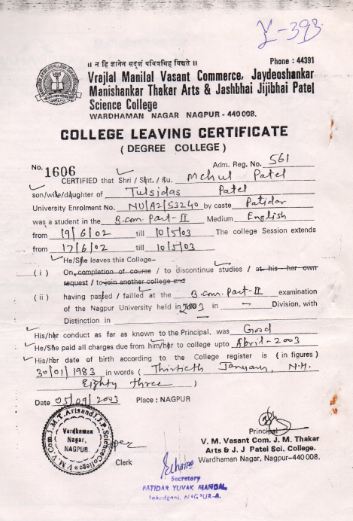 Y-393
॥ न हि ज्ञानेन सदृशं पवित्रमिह विद्यते ॥
Phone : 44391
Vrajlal Manilal Vasant Commerce, Jaydeoshankar
Manishankar Thakar Arts & Jashbhai Jijibhai Patel
Science College
WARDHAMAN NAGAR NAGPUR - 440 008.
COLLEGE LEAVING CERTIFICATE
( DEGREE COLLEGE )
No. 1606
Adm. Reg. No. 561
CERTIFIED that Shri / Smt. / Ku. Mehul Patel
son/wife/daughter of Tulsidas Patel
University Enrolment No. NU/A2/53240 by caste Patidar
was a student in the B.com. Part-II Medium English
from 19/6/02 till 10/5/03 The college Session extends
from 17/6/02 till 10/5/03
He/She leaves this College-
( i ) On completion of course / to discontinue studies / at his - her own
request / to join another college and
( ii ) having passed / failed at the B.com. Part-II examination
of the Nagpur University held in 2003 in Division, with
Distinction in
His/her conduct as far as known to the Principal, was Good
He/She paid all charges due from him/her to college upto April-2003
His/her date of birth according to the College register is ( in figures )
30/01/1983 in words ( Thirtieth January, N.H.
Eighty three )
Date 05/09/2003 Place : NAGPUR
Wardhaman
Nagar,
NAGPUR.
Clerk
Principal
V. M. Vasant Com. J. M. Thakar
Arts & J. J Patel Sci. College.
Wardhaman Nagar, Nagpur-440008.
Secretary
PATIDAR YUVAK MANDAL
NAGPUR-8.